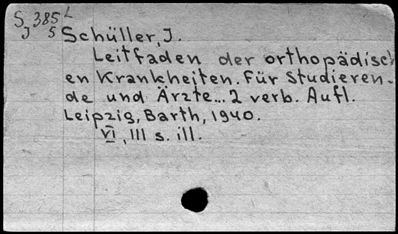 S. 385 L
J 5
Schüller, J.
Leitfaden der orthopädisch
en Krankheiten. Für Studieren-
de und Ärzte... 2 verb. Aufl.
Leipzig, Barth, 1940.
VI, 111 s. ill.